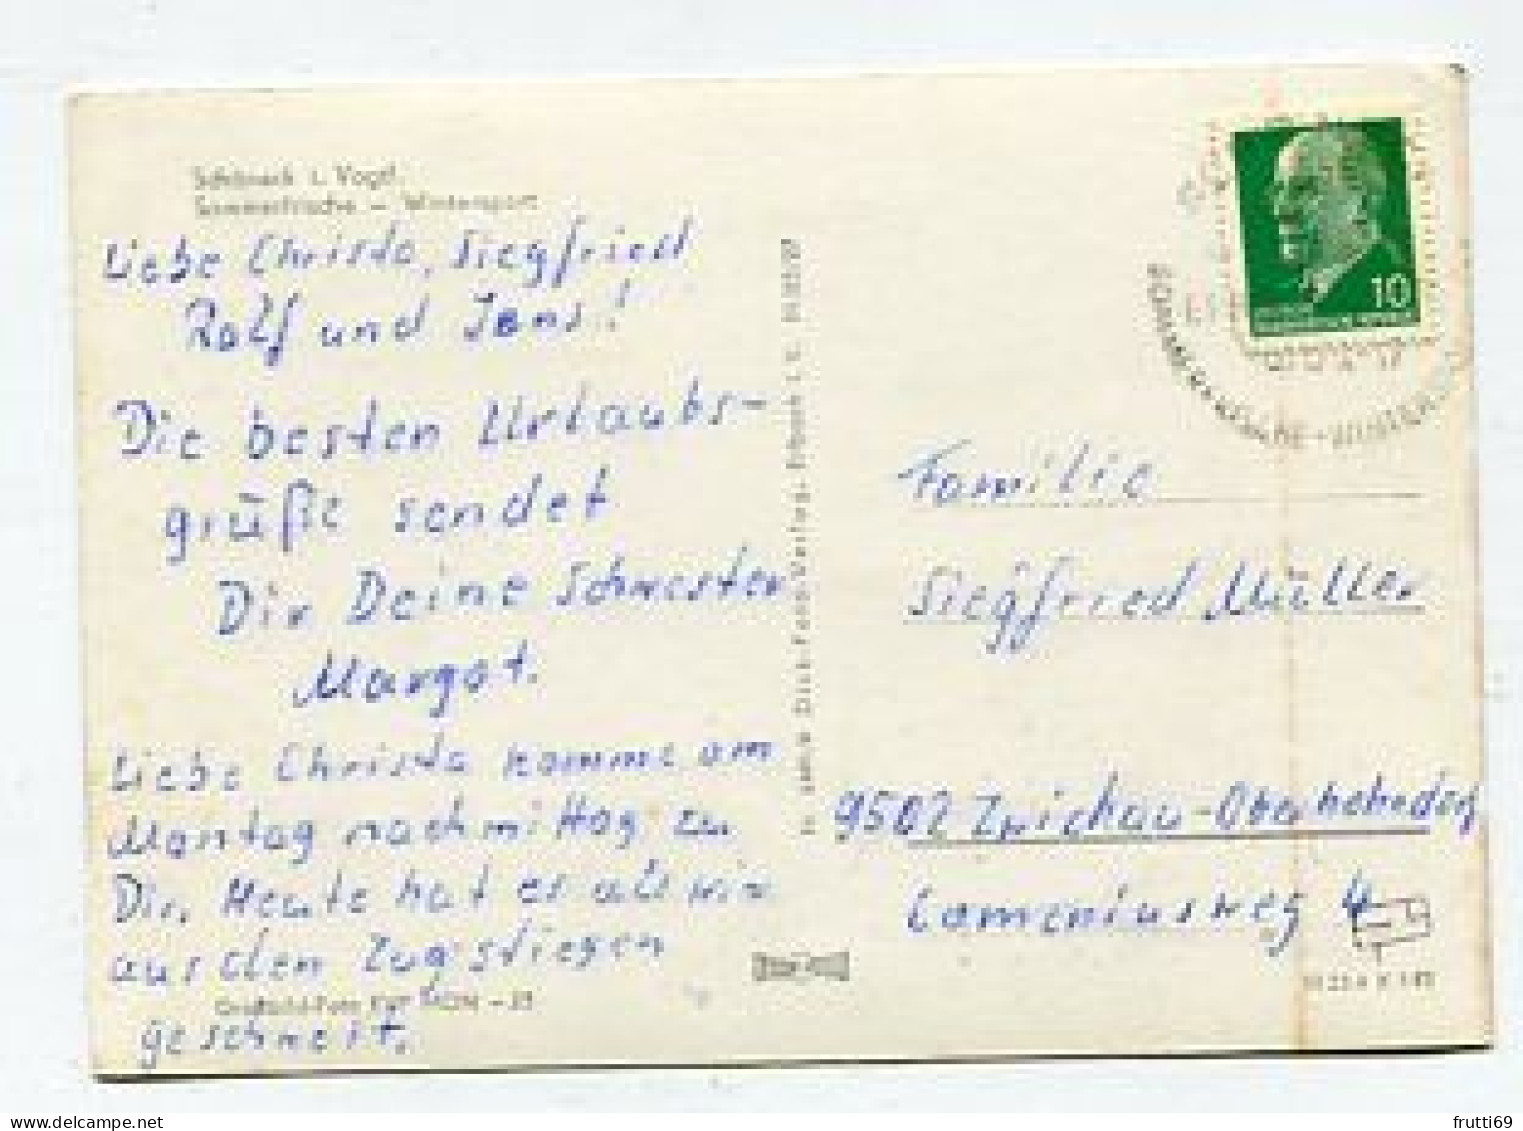 Schöneck i. Vogtl.
Sommerfrische – Wintersport
Liebe Christa, Siegfried
Rolf und Jens!
Die besten Urlaubs-
grüße sendet
Dir Deine Schwester
Margot.
Liebe Christa komme am
Montag nachmittag zu
Dir. Heute hat es als wir
aus den Zug stiegen
geschneit.
10
Familie
Siegfried Müller
9502 Zwickau-Oberhohndorf
Comeniusweg 4
frutti69